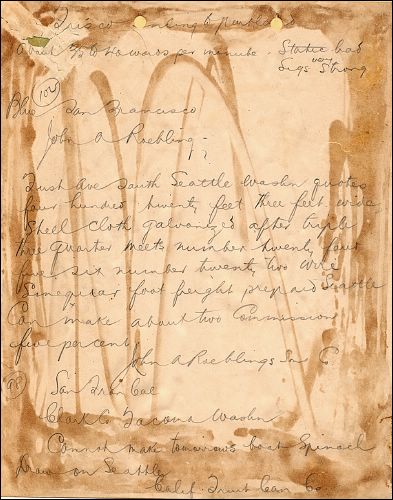 Frisco
About 35 to 40 words per minute. Static bad
Sigs very Strong
102
Blue San Francisco
John A Roebling
First Ave South Seattle Washn quotes
four hundred twenty feet three feet wide
Steel cloth galvanized after triple
three quarter mesh number twenty four
five six number twenty two wire
square foot freight prepaid Seattle
Can make about two Commission
five percent
John A Roeblings Sn Co
San Fran Cal
Clark Co Tacoma Washn
Cannot make tomorrows boat Spinach
Draw on Seattle
Calif Fruit Can Co